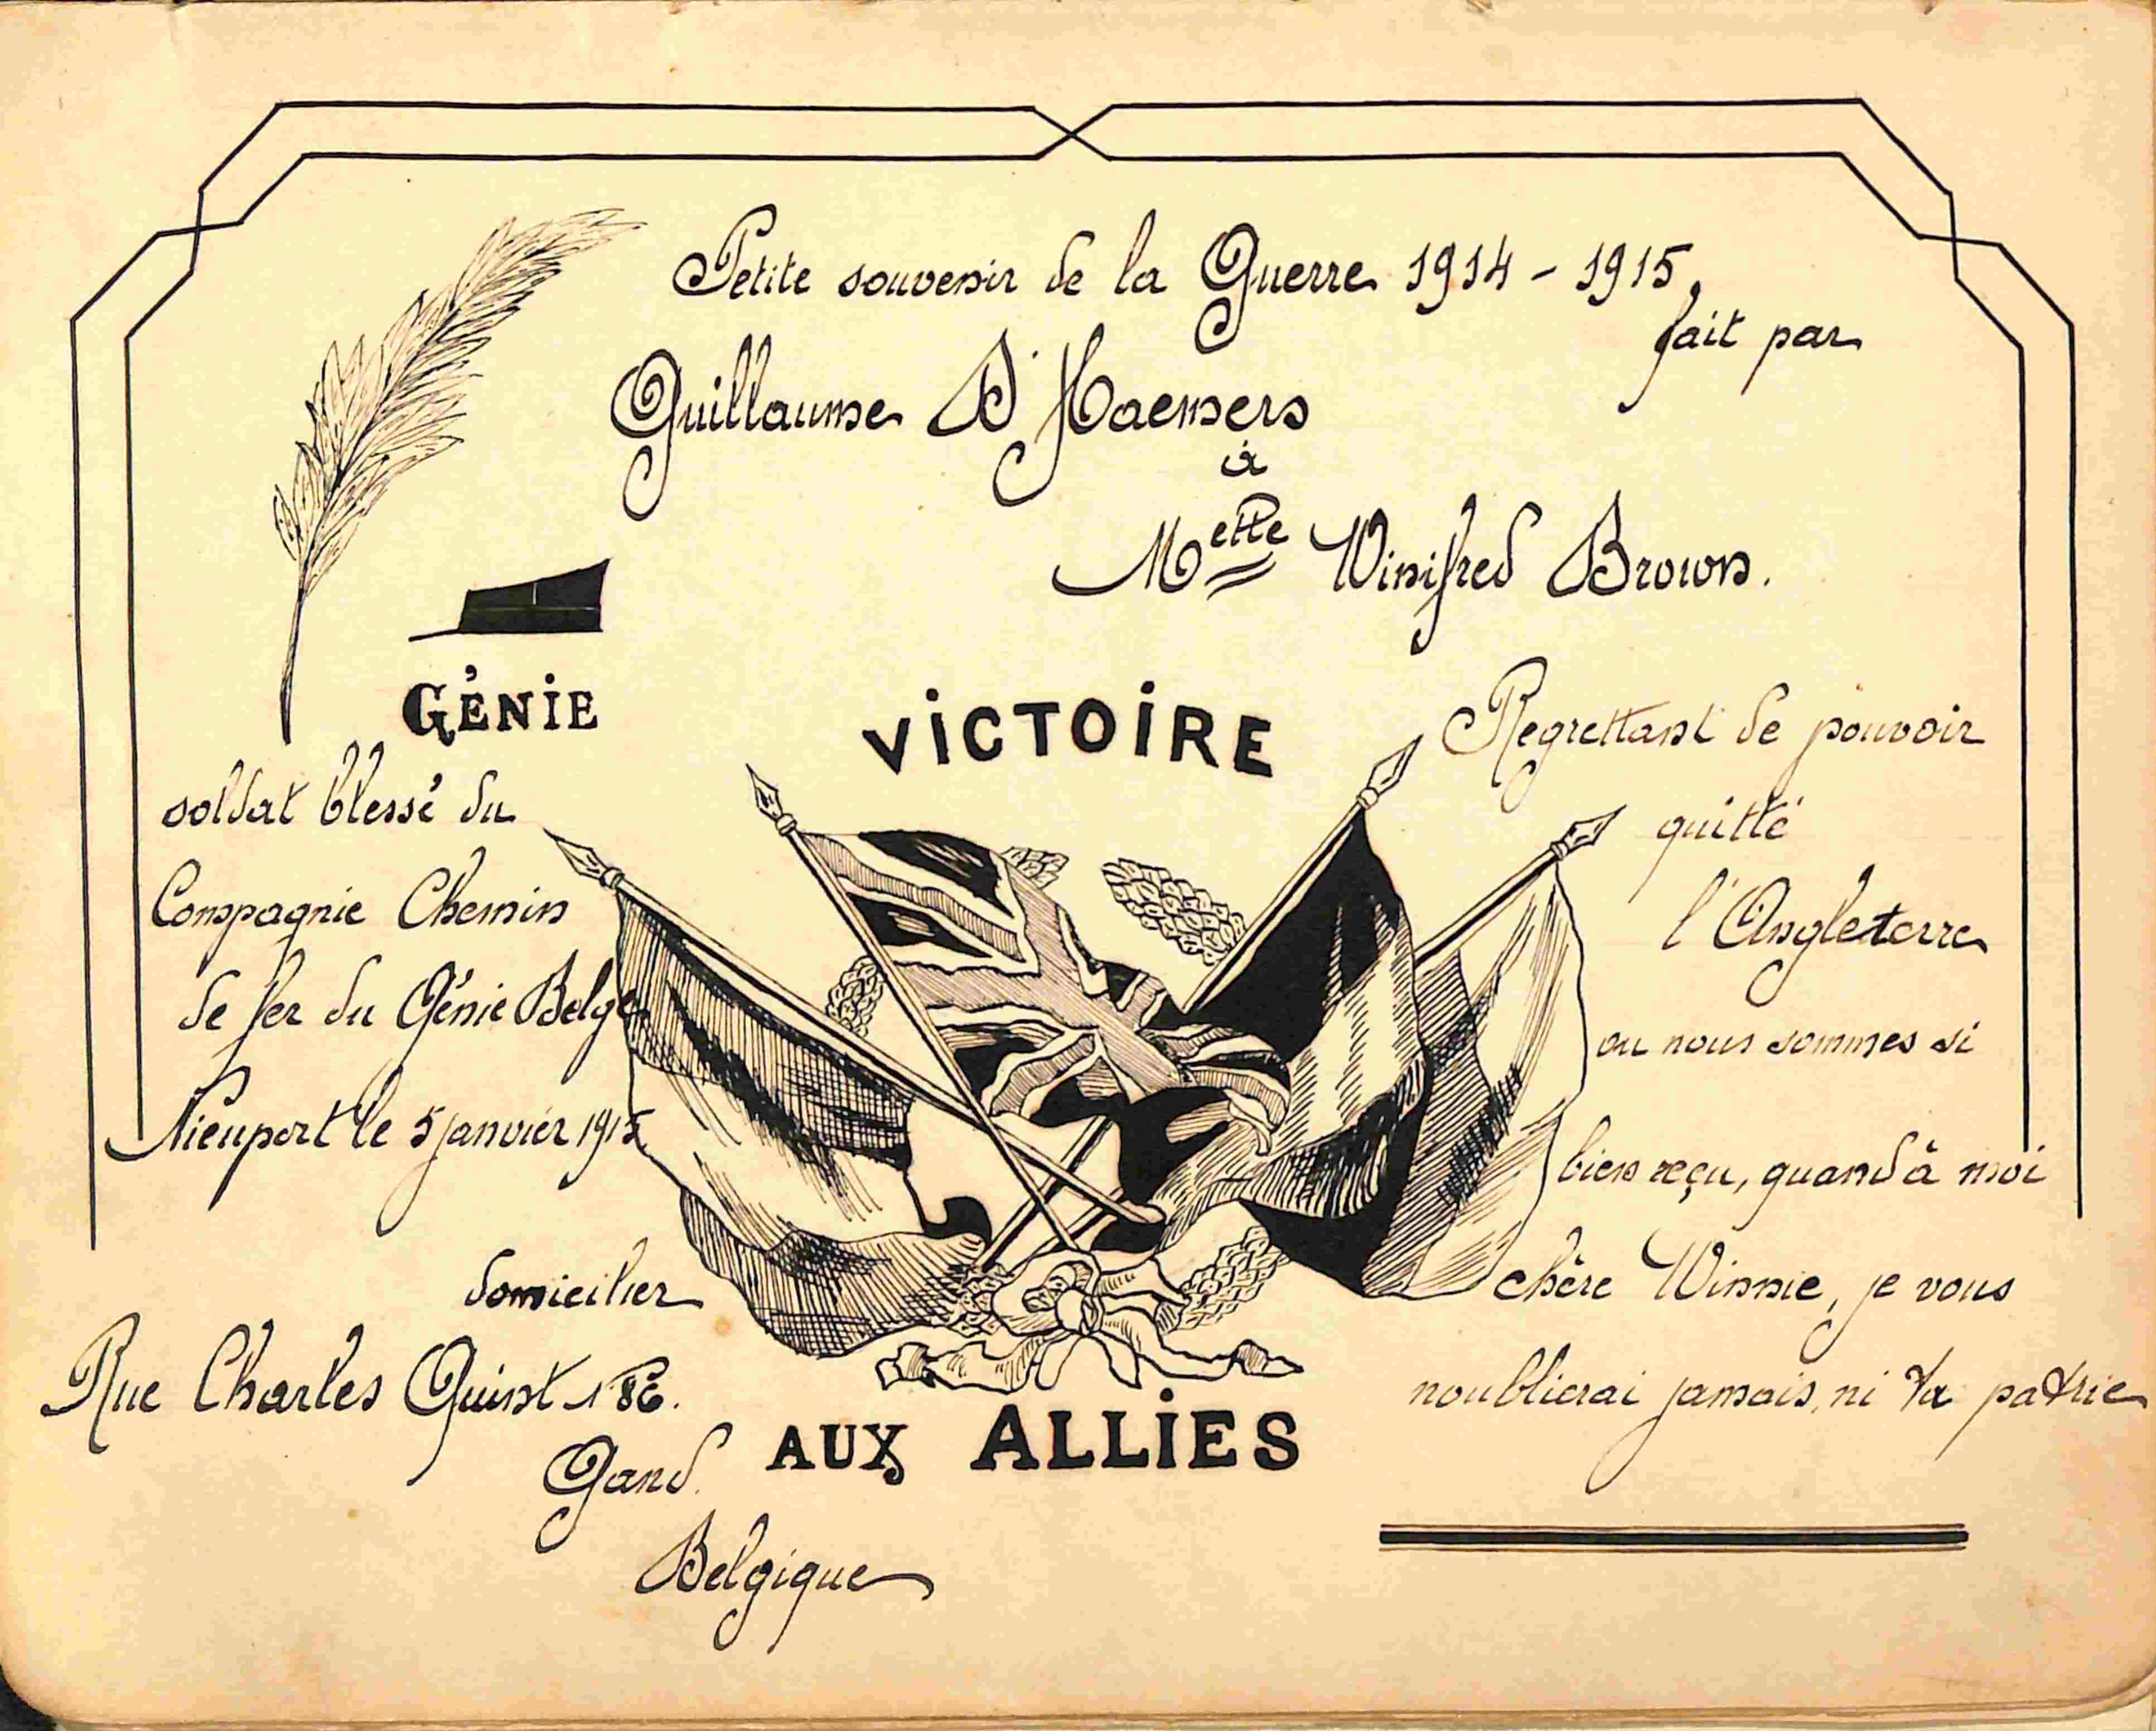 Petite souvenir de la Guerre 1914 - 1915,
fait par
Guillaume D'Haemers
à
Melle Winifred Brown.
GÉNIE
soldat blessé du
Compagnie Chemin
de fer du Génie Belge
Nieuport le 5 janvier 1915
domicilier
Rue Charles Quint 186.
Gand.
Belgique
VICTOIRE
AUX ALLIES
Regrettant de pouvoir
quitté
l'Angleterre
ou nous sommes si
bien reçu, quand à moi
chère Winnie, je vous
noublierai jamais, ni ta patrie